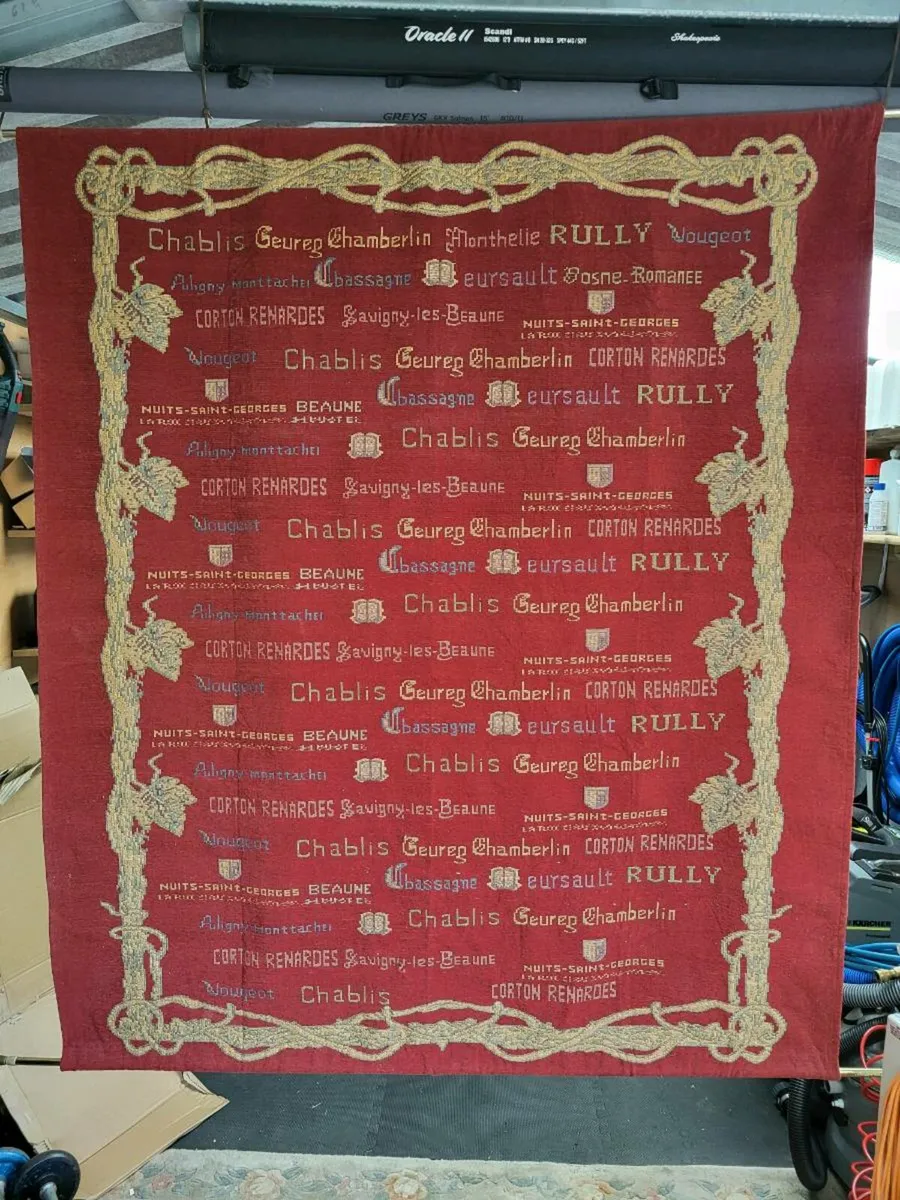 Oracle II Scandi Shakespeare
GREYS GRX Salmon 15' #10/11
Chablis Geureg Chamberlin Monthelie RULLY Vougeot
Puligny-Monttachei Chassagne Meursault Vosne-Romanee
CORTON RENARDES Savigny-les-Beaune NUITS-SAINT-GEORGES
Vougeot Chablis Geureg Chamberlin CORTON RENARDES
NUITS-SAINT-GEORGES BEAUNE Chassagne eursault RULLY
Puligny-Monttachei Chablis Geureg Chamberlin
CORTON RENARDES Savigny-les-Beaune NUITS-SAINT-GEORGES
Vougeot Chablis Geureg Chamberlin CORTON RENARDES
NUITS-SAINT-GEORGES BEAUNE Chassagne eursault RULLY
Puligny-Monttachei Chablis Geureg Chamberlin
CORTON RENARDES Savigny-les-Beaune NUITS-SAINT-GEORGES
Vougeot Chablis Geureg Chamberlin CORTON RENARDES
NUITS-SAINT-GEORGES BEAUNE Chassagne eursault RULLY
Puligny-Monttachei Chablis Geureg Chamberlin
CORTON RENARDES Savigny-les-Beaune NUITS-SAINT-GEORGES
Vougeot Chablis Geureg Chamberlin CORTON RENARDES
NUITS-SAINT-GEORGES BEAUNE Chassagne eursault RULLY
Puligny-Monttachei Chablis Geureg Chamberlin
CORTON RENARDES Savigny-les-Beaune NUITS-SAINT-GEORGES
Vougeot Chablis CORTON RENARDES
KÄRCHER